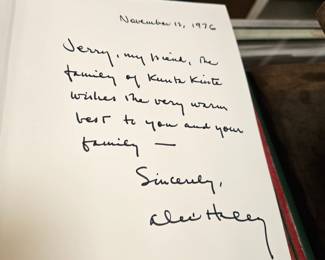 November 12, 1976
Jerry, my friend, the
family of Kunta Kinte
wishes the very warm
best to you and your
family —
Sincerely,
Alex Haley